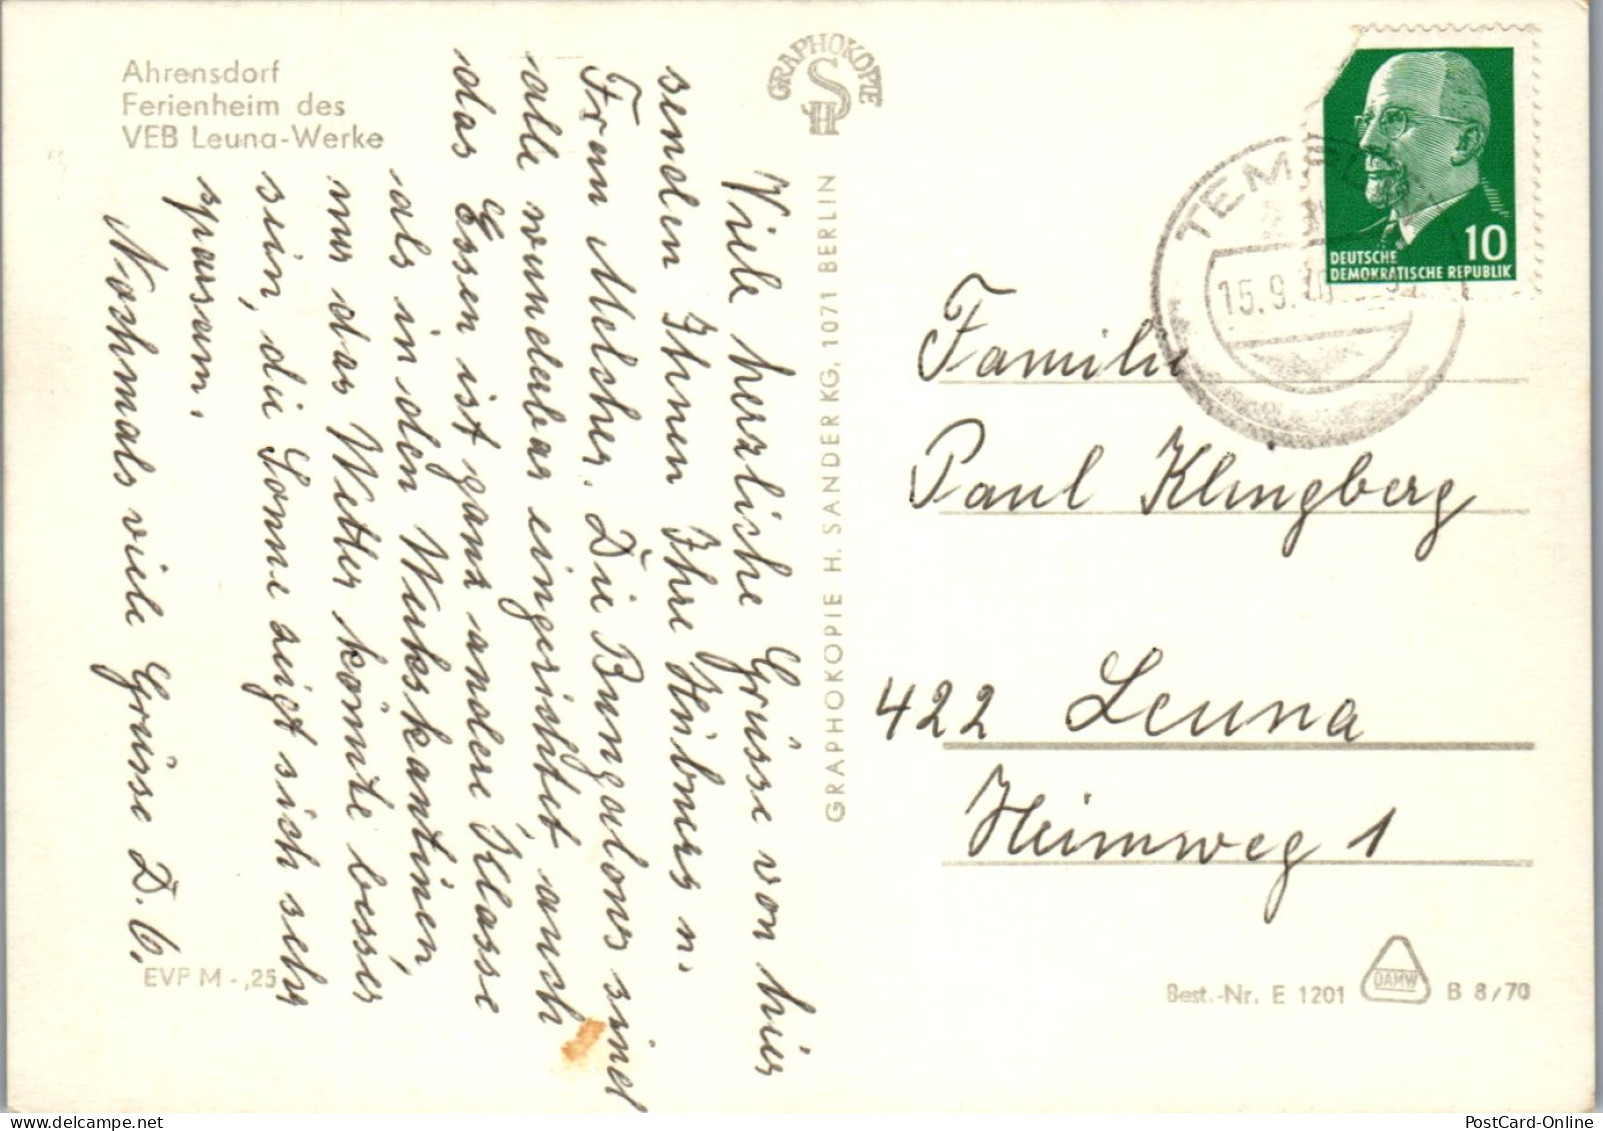 Ahrensdorf
Ferienheim des
VEB Leuna-Werke
Viele herzliche Grüsse von hier
senden Ihnen Ihre Hübners u.
Frau Melcher. Die Bungalows sind
alle wunderbar eingerichtet, auch
das Essen ist ganz andere Klasse
als in den Werkskantinen,
nur das Wetter könnte besser
sein, die Sonne zeigt sich sehr
sparsam.
Nochmals viele Grüsse D. O.
EVP M -,25
GRAPHOKOPIE
H S
GRAPHOKOPIE H. SANDER KG, 1071 BERLIN
DEUTSCHE
DEMOKRATISCHE REPUBLIK
10
TEMPLIN
15.9.
Familie
Paul Klingberg
422 Leuna
Heimweg 1
Best.-Nr. E 1201 DAMW B 8/70
PostCard-Online